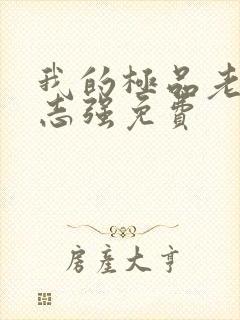 我的極品老
志强免費
房產大亨